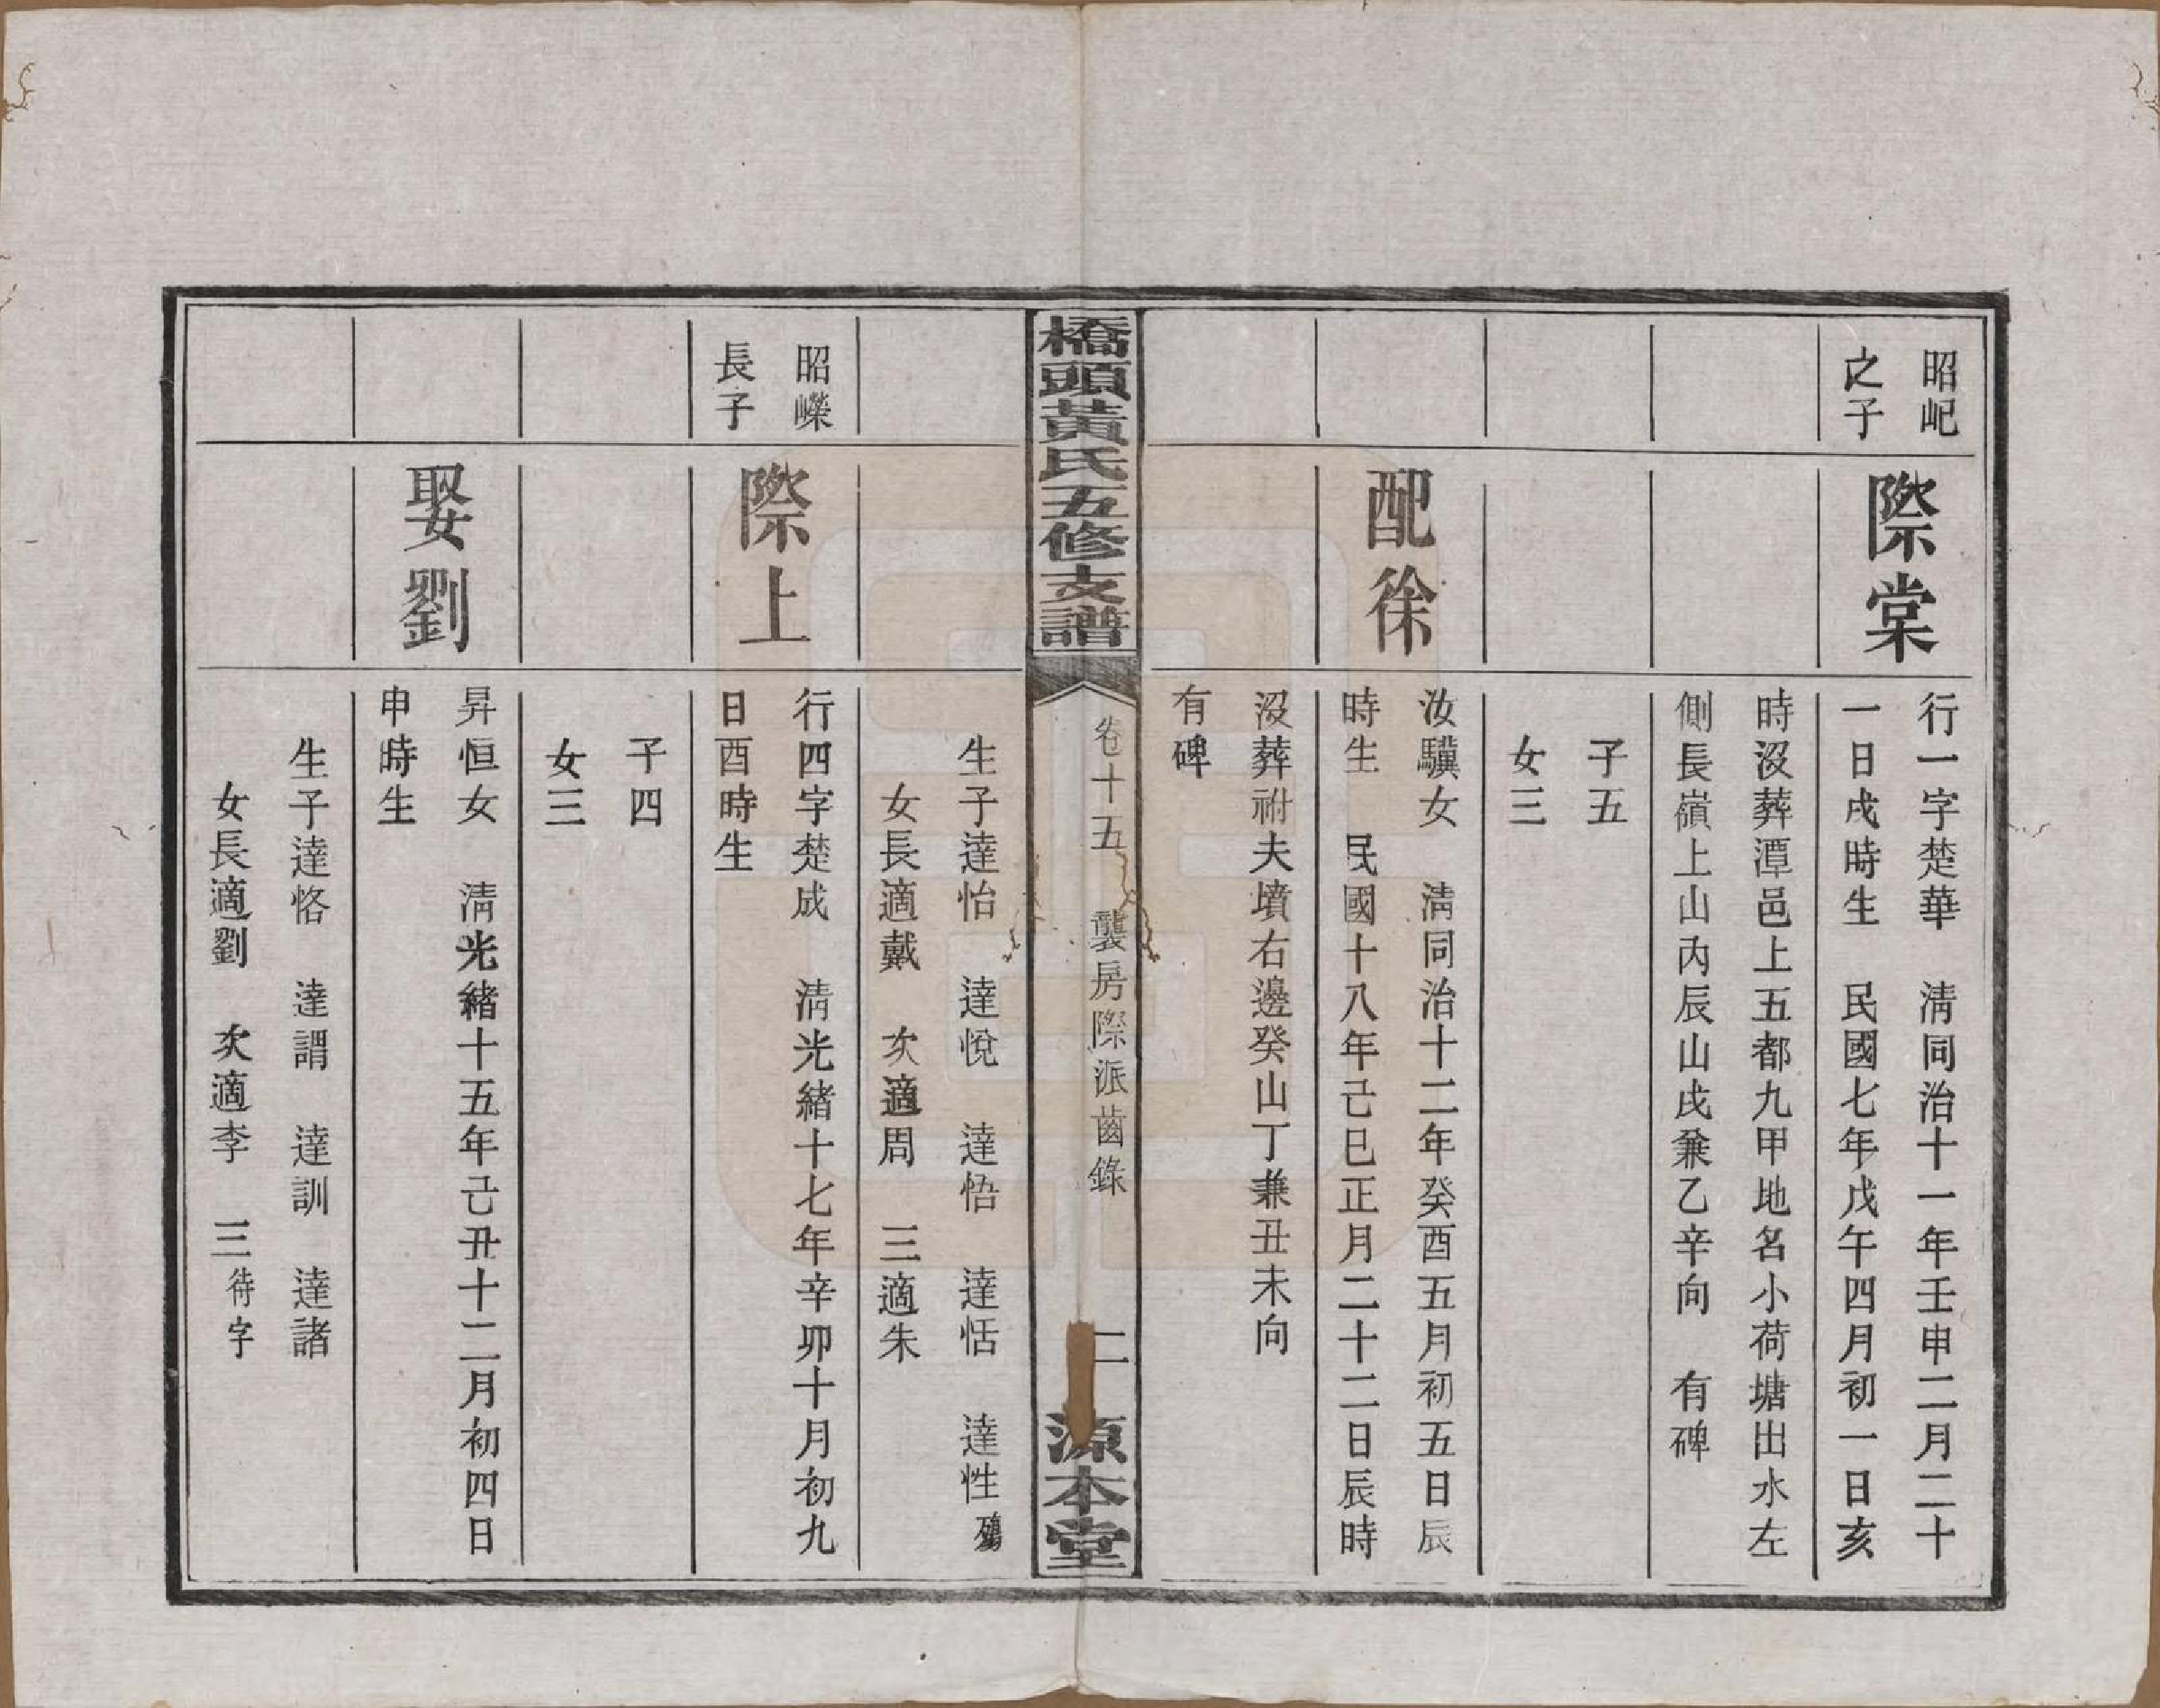 昭屺
之子
際棠
行一字楚華　淸同治十一年壬申二月二十
一日戌時生　民國七年戊午四月初一日亥
時沒葬潭邑上五都九甲地名小荷塘出水左
側長嶺上山內辰山戌兼乙辛向　有碑
子五
女三
配徐
汝驥女　淸同治十二年癸酉五月初五日辰
時生　民國十八年己巳正月二十二日辰時
沒葬祔夫墳右邊癸山丁兼丑未向
有碑
橋頭黃氏五修支譜
卷十五　襲房際派齒錄
二
源本堂
生子達怡　達悅　達悟　達恬　達性殤
女長適戴　次適周　三適朱
昭嶸
長子
際上
行四字楚成　淸光緖十七年辛卯十月初九
日酉時生
子四
女三
娶劉
昇恒女　淸光緖十五年己丑十二月初四日
申時生
生子達恪　達謂　達訓　達諸
女長適劉　次適李　三待字